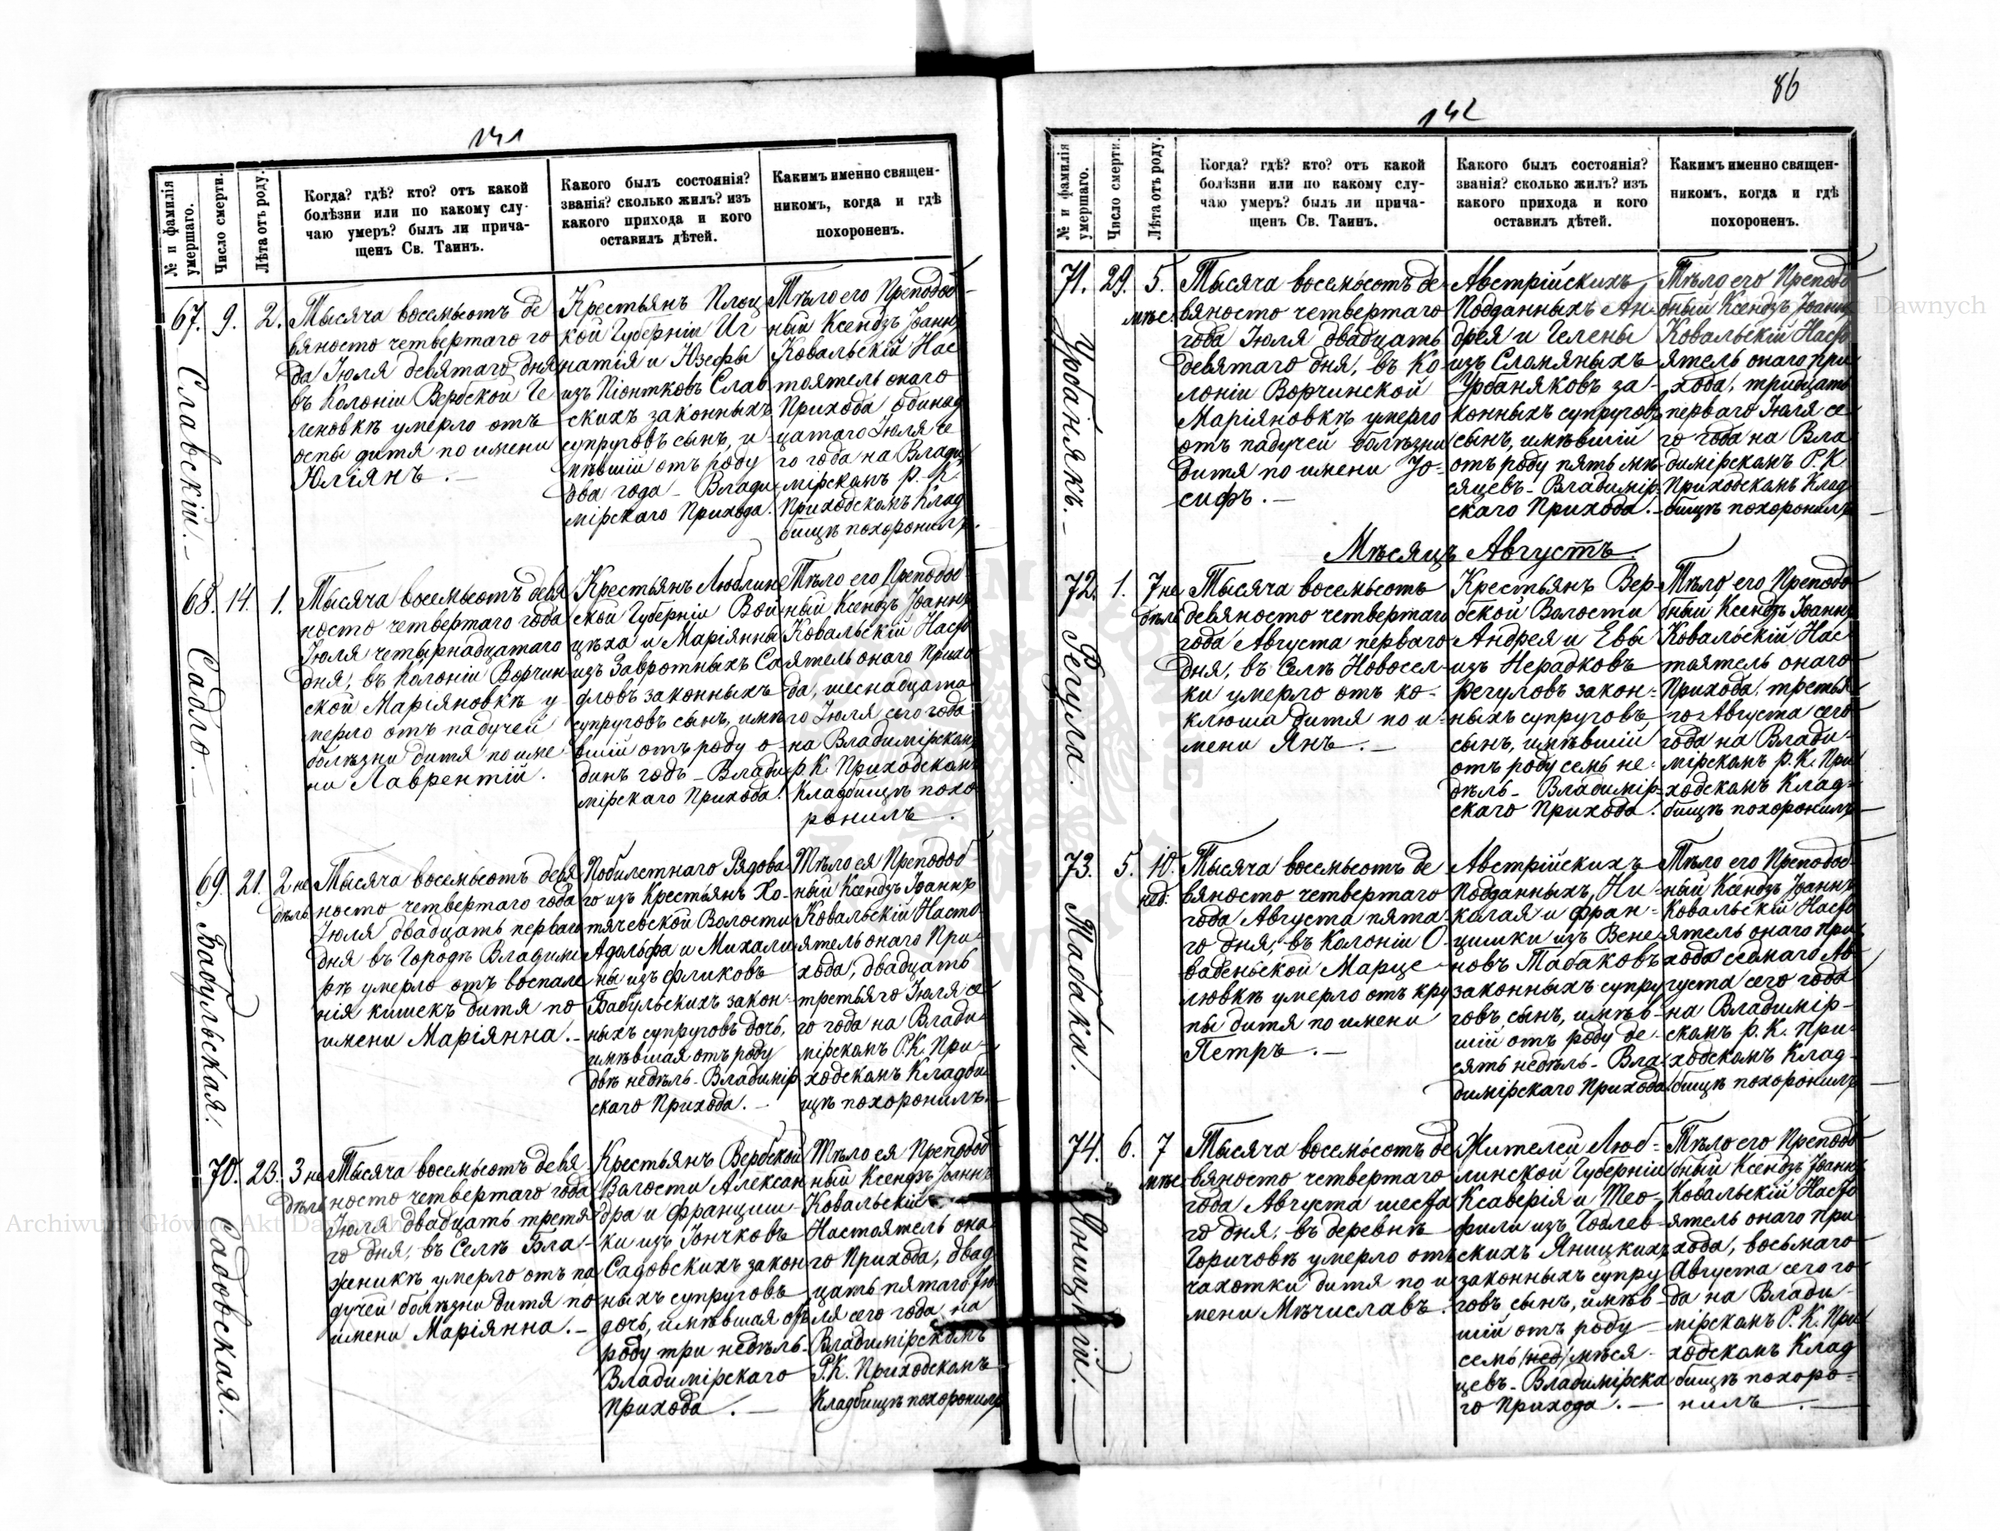 141
№ и фамилія умершаго.
Число смерти.
Лѣта отъ роду.
Когда? гдѣ? кто? отъ какой
болѣзни или по какому слу-
чаю умеръ? былъ ли прича-
щенъ Св. Таинъ.
Какого былъ состоянія?
званія? сколько жилъ? изъ
какого прихода и кого
оставилъ дѣтей.
Какимъ именно священ-
никомъ, когда и гдѣ
похороненъ.
67.
Славскій. —
9.
2.
Тысяча восемьсотъ де
вяносто четвертаго го
да Іюля девятаго дня
въ Колоніи Вербской Че
леновкѣ умерло отъ
оспы дитя по имени
Юліянъ. —
Крестьянъ Плоц
кой Губерніи Иг
натія и Юзефы
изъ Піонтковъ Слав
скихъ законныхъ
супруговъ сынъ, и
мѣвшій отъ роду
два года — Влади
мірскаго Прихода.
Тѣло его Преподоб-
ный Ксендзъ Іоаннъ
Ковальскій Нас
тоятель онаго
Прихода одинад
цатаго Іюля се
го года на Влади
мірскомъ Р. К.
Приходскомъ Клад
бищѣ похоронилъ.
68.
Садло. —
14.
1.
Тысяча восемьсотъ девя
носто четвертаго года
Іюля четырнадцатаго
дня, въ Колоніи Ворчин
ской Маріяновкѣ у-
мерло отъ падучей
болѣзни дитя по име
ни Лаврентій.
Крестьянъ Люблин
ской Губерніи Вой
цѣха и Маріянны
изъ Завротныхъ Са
дловъ законныхъ
супруговъ сынъ, имѣ
вшій отъ роду о-
динъ годъ — Влади
мірскаго Прихода.
Тѣло его Преподоб-
ный Ксендзъ Іоаннъ
Ковальскій Насто
ятель онаго Прихо
да, шеснадцата
го Іюля сего года
на Владимірскомъ
Р. К. Приходскомъ
Кладбищѣ похо
ронилъ.
69.
Бабульская.
21.
2 не
дѣль
Тысяча восемьсотъ девя
носто четвертаго года
Іюля двадцать перваго
дня въ Городѣ Владими
рѣ умерло отъ воспале
нія кишекъ дитя по
имени Маріянна. —
Побилетнаго Рядова
го изъ Крестьянъ Хо-
тячевской Волости
Адольфа и Михали
ны изъ Фликовъ
Бабульскихъ закон-
ныхъ супруговъ дочь,
имѣвшая отъ роду
двѣ недѣль — Владимір
скаго Прихода. —
Тѣло ея Преподоб
ный Ксендзъ Іоаннъ
Ковальскій Насто-
ятель онаго При-
хода, двадцать
третьяго Іюля се
го года на Влади-
мірскомъ Р. К. При-
ходскомъ Кладби-
щѣ похоронилъ. —
70.
Садовская. —
23.
3 не
дѣль
Тысяча восемьсотъ девя-
носто четвертаго года
Іюля двадцать третья
го дня, въ Селѣ Бла-
женикѣ умерло отъ па
дучей болѣзни дитя по
имени Маріянна. —
Крестьянъ Вербской
Волости Алексан
дра и Франциш-
ки изъ Гончковъ
Садовскихъ закон
ныхъ супруговъ
дочь, имѣвшая отъ
роду три недѣль —
Владимірскаго
Прихода. —
Тѣло ея Преподоб
ный Ксендзъ Іоаннъ
Ковальскій
Настоятель она
го Прихода, двад
цать пятаго Ію
ля сего года на
Владимірскомъ
Р. К. Приходскомъ
Кладбищѣ похоронилъ
142
86
№ и фамилія умершаго.
Число смерти.
Лѣта отъ роду.
Когда? гдѣ? кто? отъ какой
болѣзни или по какому слу-
чаю умеръ? былъ ли прича-
щенъ Св. Таинъ.
Какого былъ состоянія?
званія? сколько жилъ? изъ
какого прихода и кого
оставилъ дѣтей.
Какимъ именно священ-
никомъ, когда и гдѣ
похороненъ.
71.
Урбанякъ. —
29.
5.
мѣс.
Тысяча восемьсотъ де
вяносто четвертаго
года Іюля двадцать
девятаго дня, въ Ко
лоніи Ворчинской
Маріяновкѣ умерло
отъ падучей болѣзни
дитя по имени Іо-
сифъ. —
Австрійскихъ
Подданныхъ Ан-
дрея и Гелены
изъ Сломяныхъ
Урбаняковъ за-
конныхъ супруговъ
сынъ, имѣвшій
отъ роду пять мѣ
сяцевъ — Владимір
скаго Прихода. —
Тѣло его Преподо
бный Ксендзъ Іоаннъ
Ковальскій Насто
ятель онаго При
хода, тридцать
перваго Іюля се-
го года на Вла
димірскомъ Р. К.
Приходскомъ Клад
бищѣ похоронилъ
Мѣсяцъ Августъ
72.
Регула.
1.
7 не
дѣль
Тысяча восемьсотъ
девяносто четвертаго
года Августа перваго
дня, въ Селѣ Новосел-
ки умерло отъ ко-
клюша дитя по и-
мени Янъ. —
Крестьянъ Вер-
бской Волости
Андрея и Евы
изъ Нерадковъ
Регуловъ закон-
ныхъ супруговъ
сынъ, имѣвшій
отъ роду семь не-
дѣль — Владимір-
скаго Прихода.
Тѣло его Преподо
бный Ксендзъ Іоаннъ
Ковальскій Нас
тоятель онаго
Прихода, третья
го Августа сего
года на Влади-
мірскомъ Р. К. При
ходскомъ Клад-
бищѣ похоронилъ
73.
Табака.
5.
10.
нед.
Тысяча восемьсотъ де
вяносто четвертаго
года Августа пята
го дня, въ Колоніи О-
ваденьской Марце-
лювкѣ умерло отъ кру
пы дитя по имени
Петръ. —
Австрійскихъ
Подданныхъ, Ни-
колая и Фран-
цишки изъ Вене
новъ Табаковъ
законныхъ супру
говъ сынъ, имѣв-
шій отъ роду де-
сять недѣль — Вла-
димірскаго Прихода
Тѣло его Преподоб-
ный Ксендзъ Іоаннъ
Ковальскій Насто
ятель онаго При
хода седмаго Ав
густа сего года
на Владимір-
скомъ Р. К. При-
ходскомъ Клад-
бищѣ похоронилъ
74.
Яницкій. —
6.
7
мѣс
Тысяча восемьсотъ де
вяносто четвертаго
года Августа шеста
го дня, въ деревнѣ
Горичовѣ умерло отъ
чахотки дитя по и
мени Мѣчиславъ.
Жителей Люб-
линской Губерніи
Ксаверія и Тео-
фили изъ
скихъ Яницкихъ
законныхъ супру
говъ сынъ, имѣв-
шій отъ роду
семь (нед) мѣся-
цевъ — Владимірска
го Прихода. —
Тѣло его Преподо
бный Ксендзъ Іоаннъ
Ковальскій Насто
ятель онаго При
хода, восьмаго
Августа сего го-
да на Влади-
мірскомъ Р. К. При
ходскомъ Клад
бищѣ похоро-
нилъ. —
Archiwum Główne Akt Dawnych